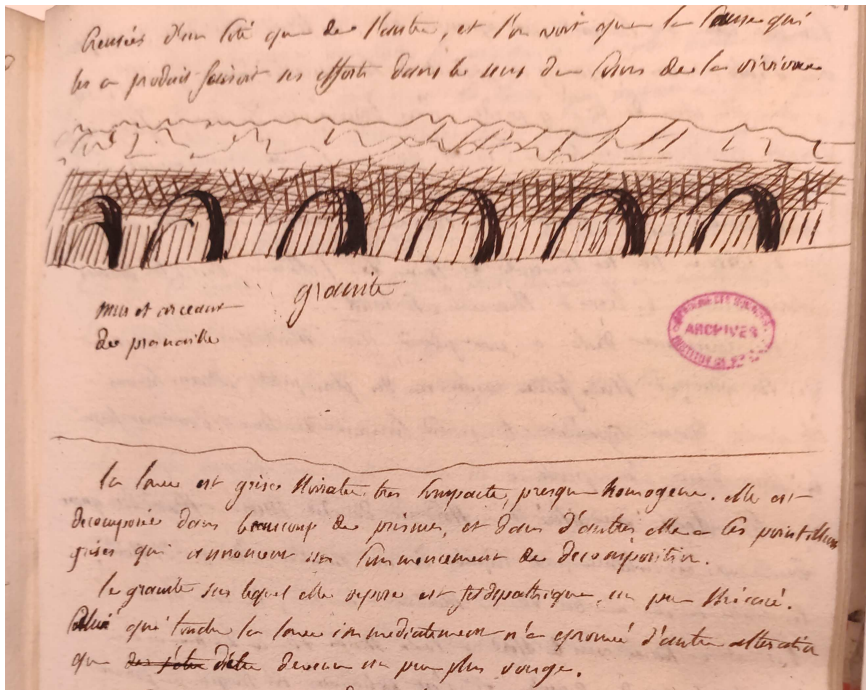 creusées d'un coté que de l'autre, et l'on voit que la cause qui
les a produit faisoit ses efforts dans le sens du cours de la rivière
granite
murs et arceaux
de pranaville
ARCHIVES
la lave est grise noiratre tres compacte, presque homogene. elle est
decomposée dans beaucoup de prismes, et dans d'autres elle a des points
grises qui annoncent un commencement de decomposition.
le granite sur lequel elle repose est feldspathique, un peu micacé.
celui que touche la lave immediatement n'a eprouvé d'autre alteration
que d'etre devenu un peu plus rouge.